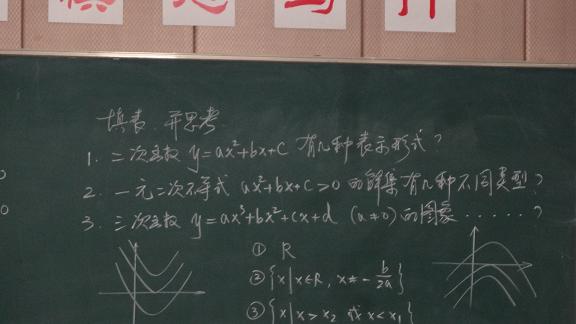 填表、并思考
1. 二次函数 y=ax²+bx+c 有几种表示形式?
2. 一元二次不等式 ax²+bx+c>0 的解集有几种不同类型?
3. 三次函数 y=ax³+bx²+cx+d (a≠0)的图象······?
① R
② {x|x∈R, x≠-b/2a}
③ {x|x>x₂ 或 x<x₁}